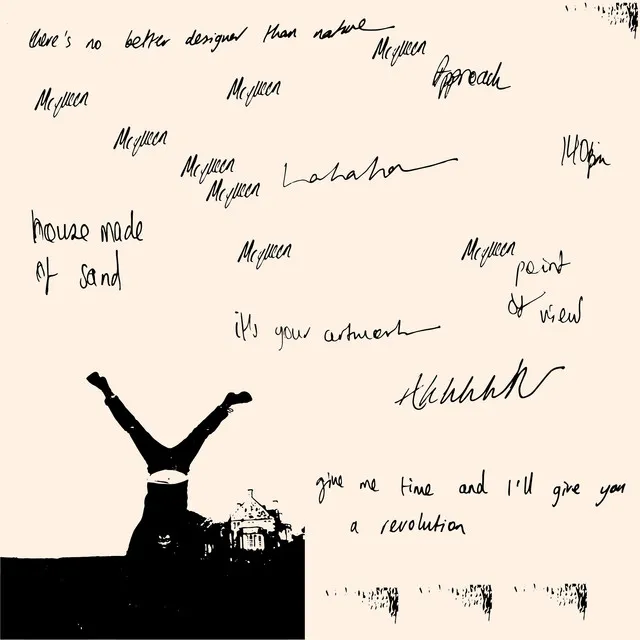 there's no better designer than nature
McQueen
Approach
McQueen
McQueen
McQueen
140bpm
McQueen
McQueen
Lahaha
house made
of sand
McQueen
McQueen
point
of view
it's your artwork
Ahhhhh
give me time and I'll give you
a revolution